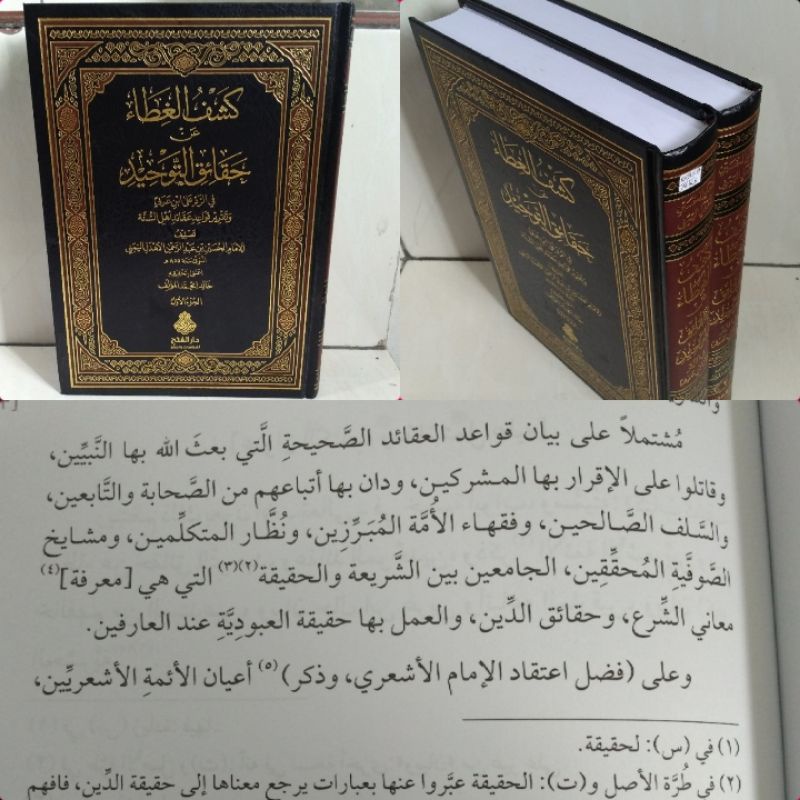 كشف الغطاء
عن
حقائق التوحيد
في الرد على ابن عربي
وتقرير قواعد عقائد أهل السنة
تصنيف
الإمام الحسين بن عبد الرحمن الأهدل اليمني
الجزء الأول
دار الفتح
كشف الغطاء
عن
حقائق التوحيد
مُشتملاً على بيان قواعد العقائد الصَّحيحةِ الَّتي بعثَ الله بها النَّبيِّين،
وقاتلوا على الإقرار بها المشركين، ودان بها أتباعهم من الصَّحابة والتَّابعين،
والسَّلف الصَّالحين، وفقهاء الأُمَّة المُبَرِّزين، ونُظَّار المتكلِّمين، ومشايخ
الصَّوفيَّةِ المُحقِّقين، الجامعين بين الشَّريعة والحقيقة(٢)(٣) التي هي [معرفة](٤)
معاني الشَّرع، وحقائق الدِّين، والعمل بها حقيقة العبوديَّةِ عند العارفين.
وعلى (فضل اعتقاد الإمام الأشعري، وذكر)(٥) أعيان الأئمةِ الأشعريِّين،
(١) في (س): لحقيقة.
(٢) في طُرَّة الأصل و(ت): الحقيقة عبَّروا عنها بعبارات يرجع معناها إلى حقيقة الدِّين، فافهم